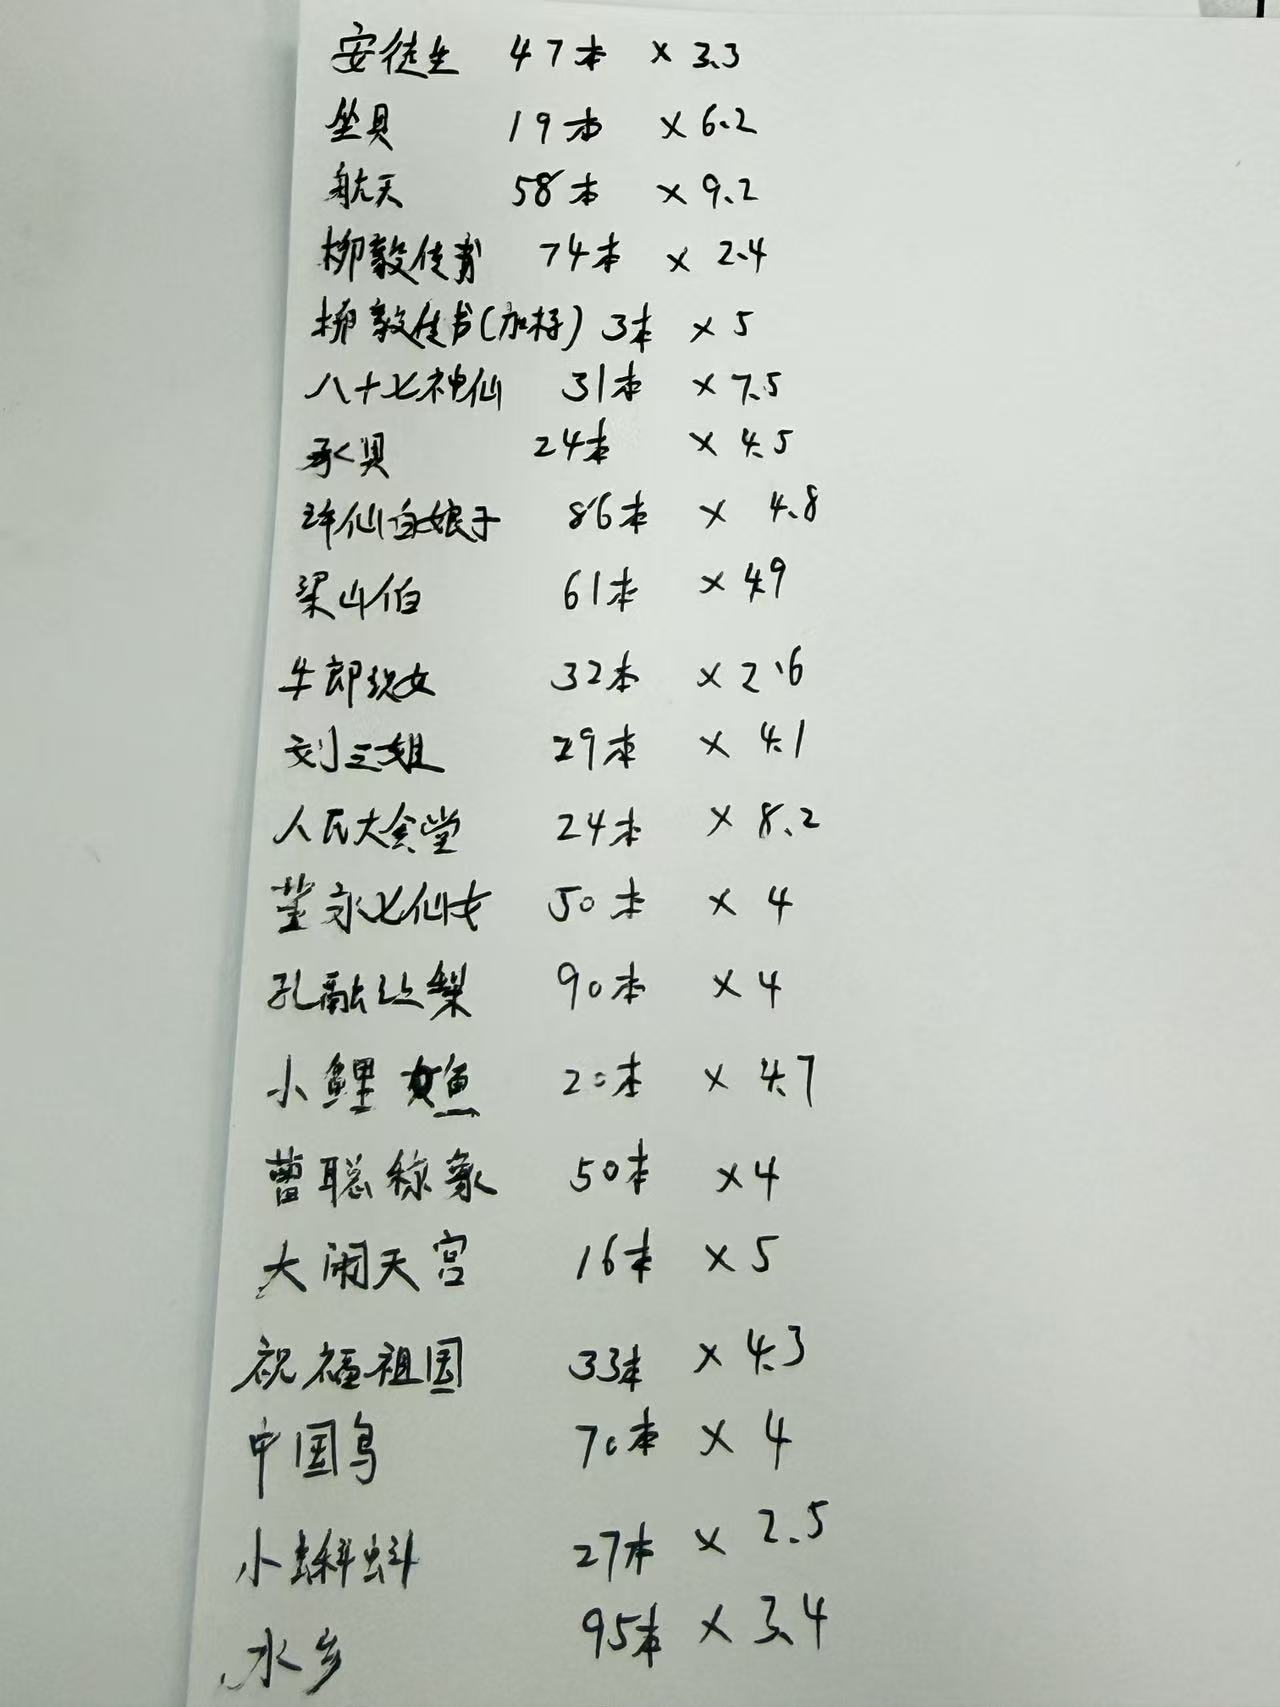 安徒生 47本 × 3.3
坐具 19本 × 6.2
航天 58本 × 9.2
柳毅传书 74本 × 2.4
柳毅传书(加标) 3本 × 5
八十七神仙 31本 × 7.5
承具 24本 × 4.5
许仙白娘子 86本 × 4.8
梁山伯 61本 × 4.9
牛郎织女 32本 × 2.6
刘三姐 29本 × 4.1
人民大会堂 24本 × 8.2
董永七仙女 50本 × 4
孔融让梨 90本 × 4
小鲤鱼 20本 × 4.7
曹聪称象 50本 × 4
大闹天宫 16本 × 5
祝福祖国 33本 × 4.3
中国鸟 70本 × 4
小蝌蚪 27本 × 2.5
水乡 95本 × 3.4